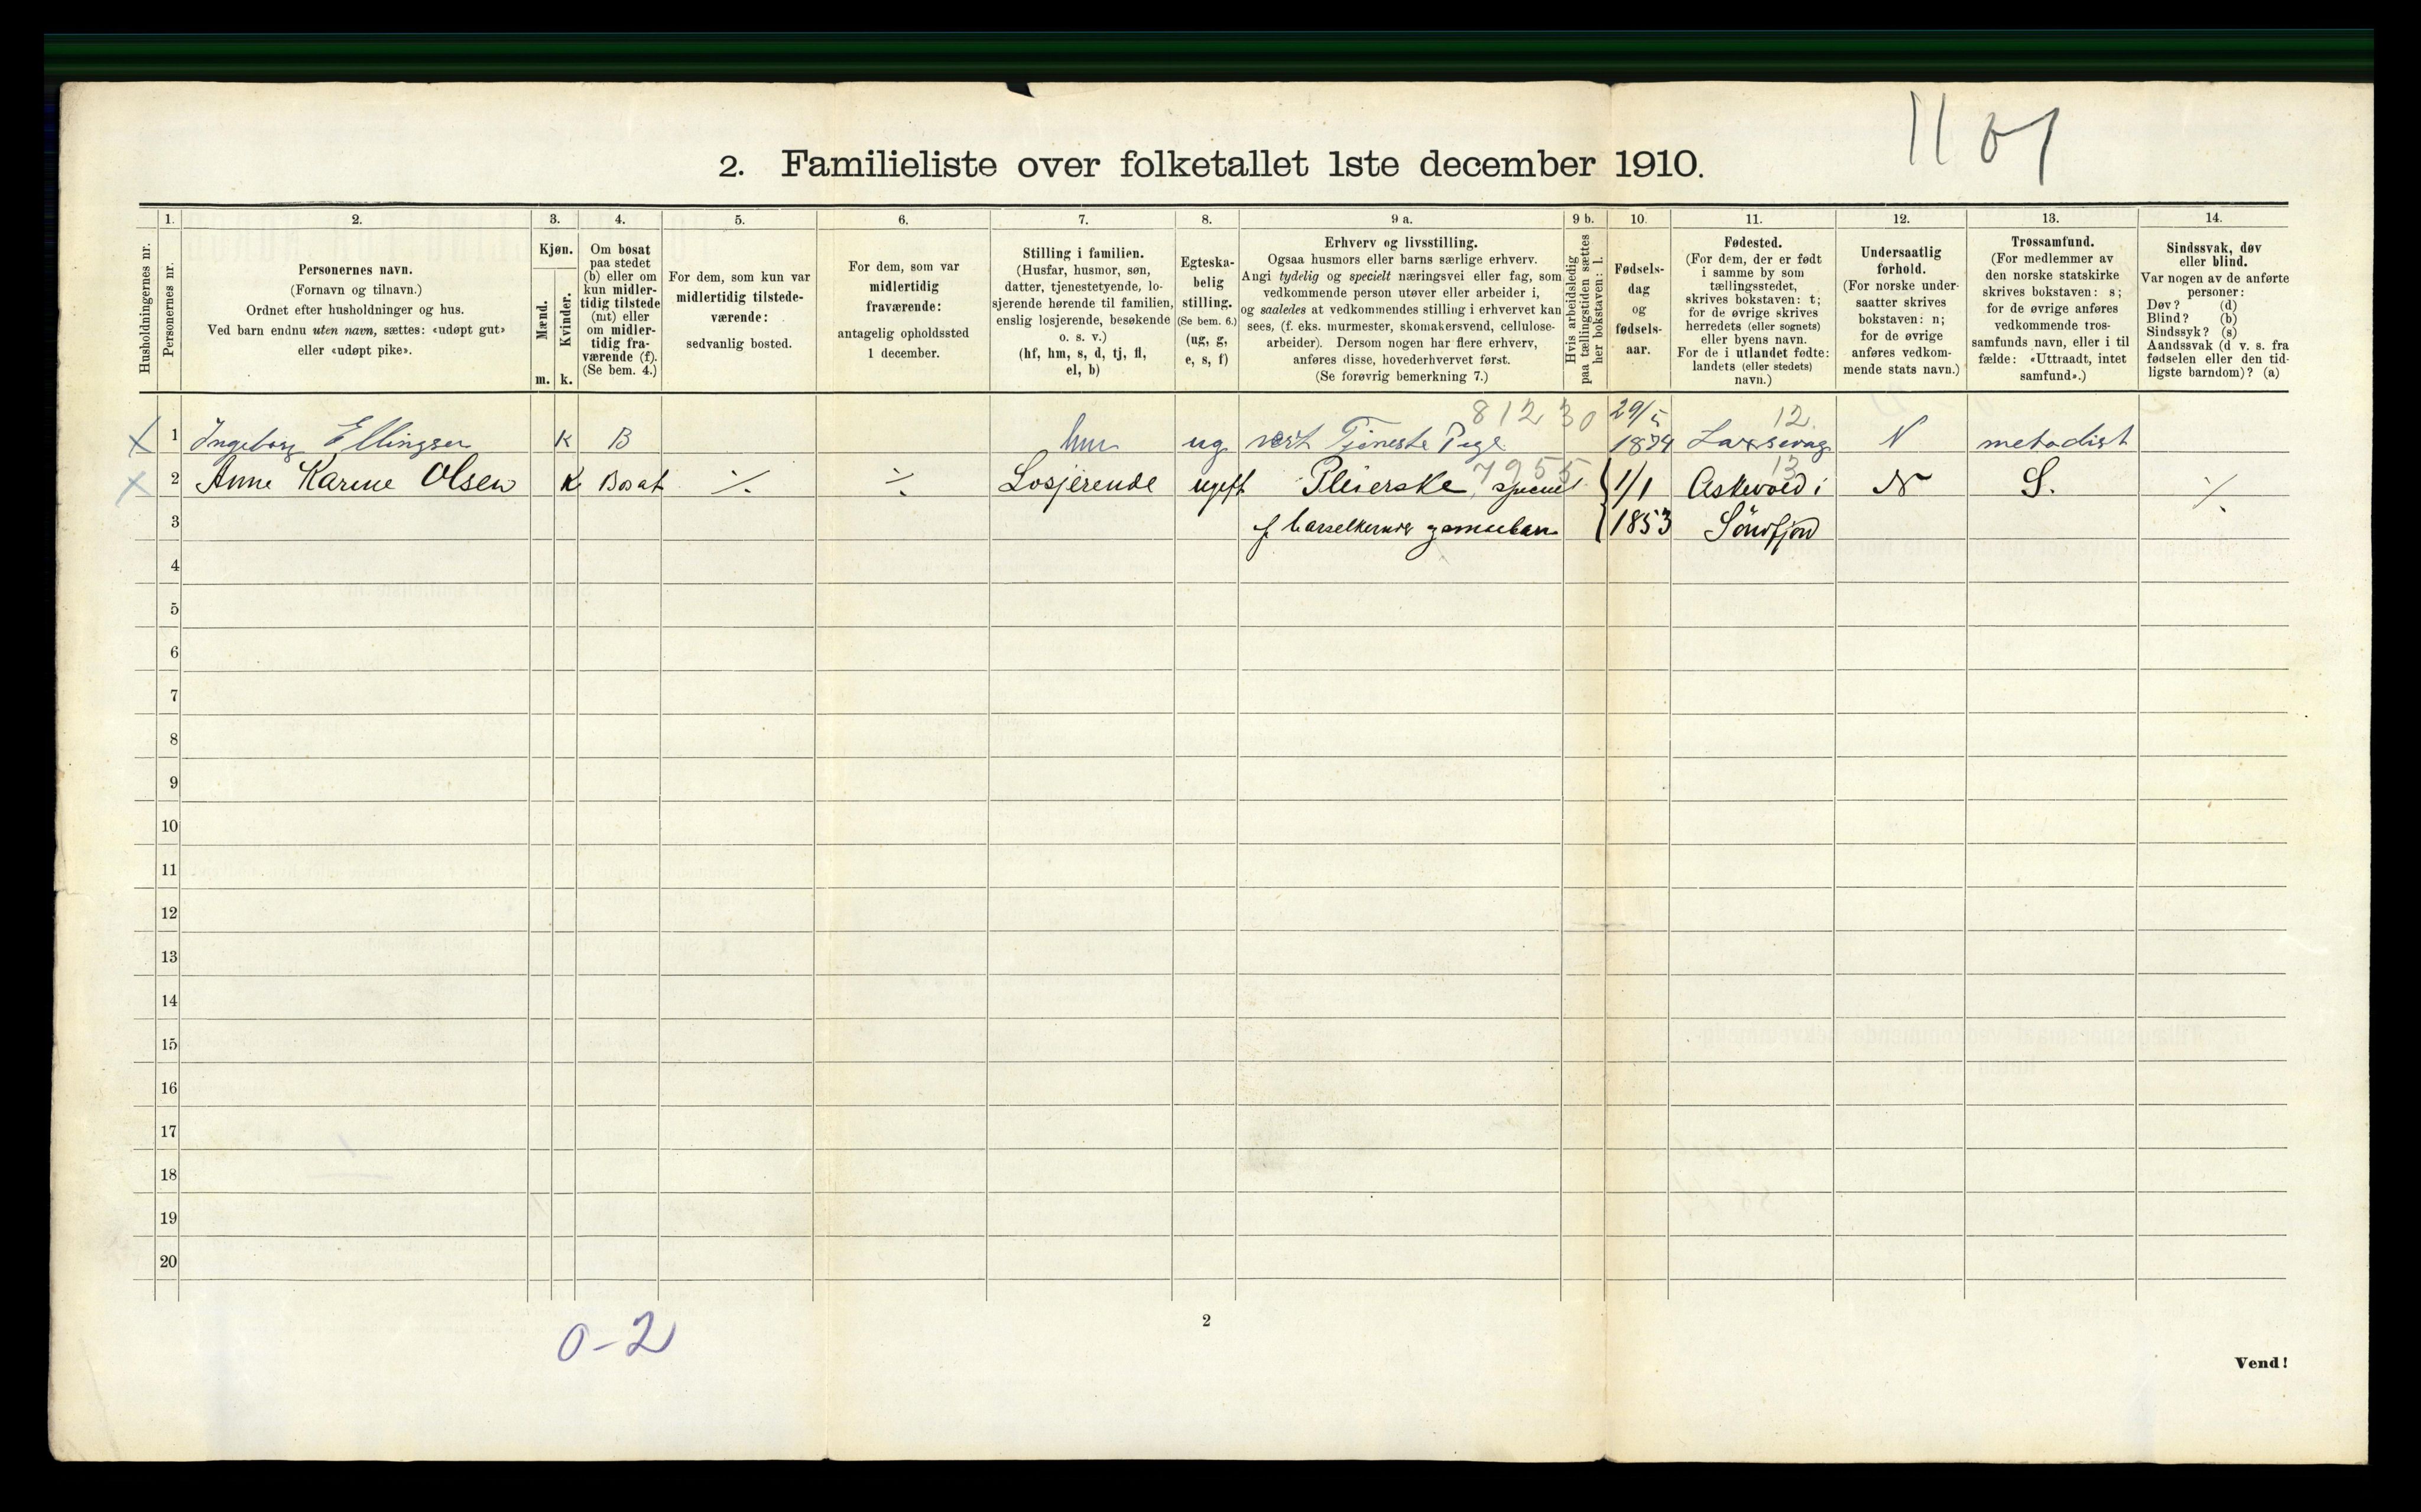 1101
2. Familieliste over folketallet 1ste december 1910.
Husholdningernes nr.
1.
Personernes nr.
2.
Personernes navn.
(Fornavn og tilnavn.)
Ordnet efter husholdninger og hus.
Ved barn endnu uten navn, sættes: «udøpt gut»
eller «udøpt pike».
3.
Kjøn.
Mænd.
Kvinder.
m. k.
4.
Om bosat
paa stedet
(b) eller om
kun midler-
tidig tilstede
(mt) eller
om midler-
tidig fra-
værende (f).
(Se bem. 4.)
5.
For dem, som kun var
midlertidig tilstede-
værende:
sedvanlig bosted.
6.
For dem, som var
midlertidig
fraværende:
antagelig opholdssted
1 december.
7.
Stilling i familien.
(Husfar, husmor, søn,
datter, tjenestetyende, lo-
sjerende hørende til familien,
enslig losjerende, besøkende
o. s. v.)
(hf, hm, s, d, tj, fl,
el, b)
8.
Egteska-
belig
stilling.
(Se bem. 6.)
(ug, g,
e, s, f)
9 a.
Erhverv og livsstilling.
Ogsaa husmors eller barns særlige erhverv.
Angi tydelig og specielt næringsvei eller fag, som
vedkommende person utøver eller arbeider i,
og saaledes at vedkommendes stilling i erhvervet kan
sees, (f. eks. murmester, skomakersvend, cellulose-
arbeider). Dersom nogen har flere erhverv,
anføres disse, hovederhvervet først.
(Se forøvrig bemerkning 7.)
9 b.
Hvis arbeidsledig
paa tællingstiden sættes
her bokstaven: l.
10.
Fødsels-
dag
og
fødsels-
aar.
11.
Fødested.
(For dem, der er født
i samme by som
tællingsstedet,
skrives bokstaven: t;
for de øvrige skrives
herredets (eller sognets)
eller byens navn.
For de i utlandet fødte:
landets (eller stedets)
navn.)
12.
Undersaatlig
forhold.
(For norske under-
saatter skrives
bokstaven: n;
for de øvrige
anføres vedkom-
mende stats navn.)
13.
Trossamfund.
(For medlemmer av
den norske statskirke
skrives bokstaven: s;
for de øvrige anføres
vedkommende tros-
samfunds navn, eller i til
fælde: «Uttraadt, intet
samfund».)
14.
Sindssvak, døv
eller blind.
Var nogen av de anførte
personer:
Døv? (d)
Blind? (b)
Sindssyk? (s)
Aandssvak (d v. s. fra
fødselen eller den tid-
ligste barndom)? (a)
812 30 29/5 12.
X 1 Ingeborg Ellingsen K B hm ug Tjeneste Pige 1874 Laxsevag N metodist
7955 13
X 2 Anne Karine Olsen K Bosat ./. ./. Losjerende ugift Pleierske 1/1 Askevold i N S. ./.
3 f barselkvinder 1853 Söndfjord
4
5
6
7
8
9
10
11
12
13
14
15
16
17
18
19
20
0-2
2
Vend!